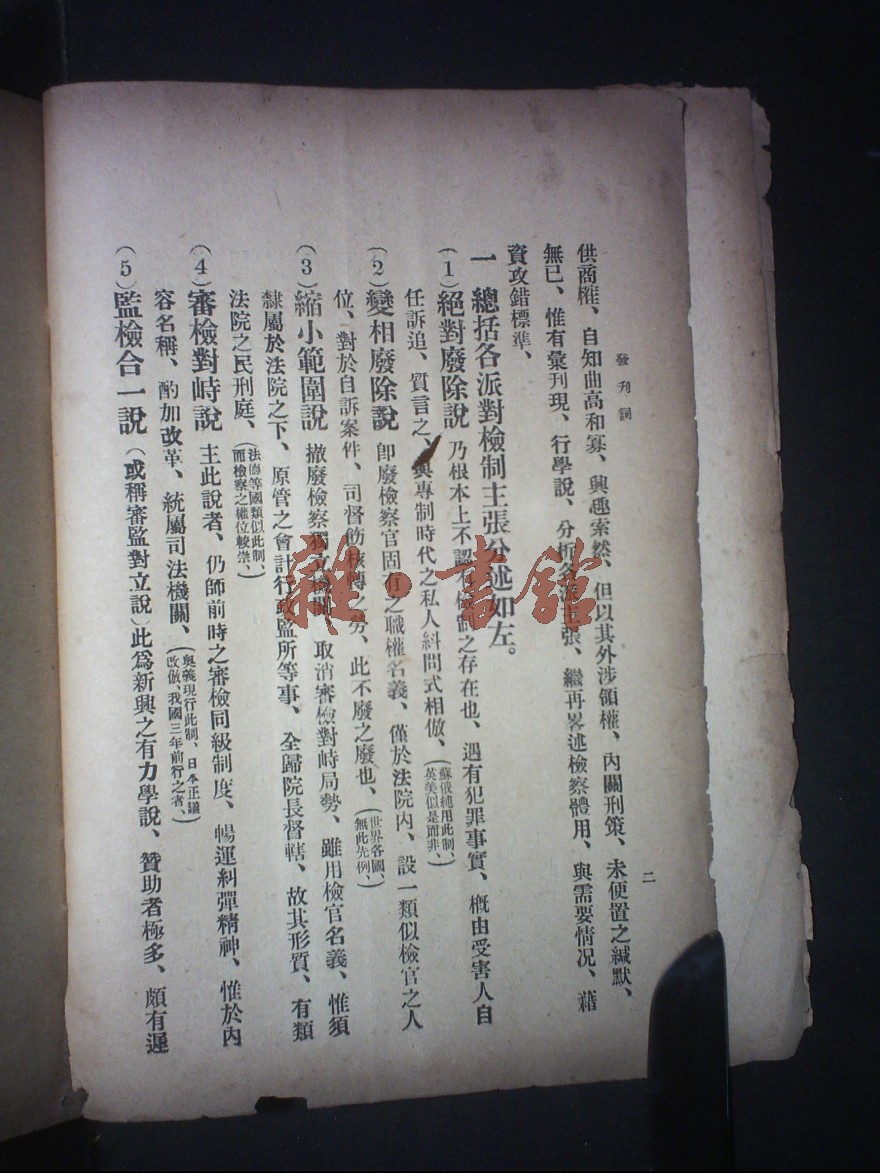 發刊詞
二
供商榷、自知曲高和寡、興趣索然、但以其外涉領權、內關刑策、未便置之緘默、
無已、惟有彙刊現、行學說、分析各派主張、繼再畧述檢察體用、與需要情况、藉
資攻錯標準、
一 總括各派對檢制主張分述如左。
(1)絕對廢除說 乃根本上不認有檢制之存在也、遇有犯罪事實、概由受害人自
任訴追、質言之、與專制時代之私人糾問式相倣、(蘇俄純用此制、英美似是而非、)
(2)變相廢除說 卽廢檢察官固有之職權名義、僅於法院內、設一類似檢官之人
位、對於自訴案件、司督飭核轉之勞、此不廢之廢也、(世界各國、無此先例、)
(3)縮小範圍說 撤廢檢察獨立機關、取消審檢對峙局勢、雖用檢官名義、惟須
隸屬於法院之下、原管之會計行政監所等事、全歸院長督轄、故其形質、有類
法院之民刑庭、(法德等國類似此制、而檢察之權位較崇、)
(4)審檢對峙說 主此說者、仍師前時之審檢同級制度、暢運糾彈精神、惟於內
容名稱、酌加改革、統屬司法機關、(奧義現行此制、日本正議改倣、我國三年前行之者、)
(5)監檢合一說(或稱審監對立說)此爲新興之有力學說、贊助者極多、頗有遲
雜·書館